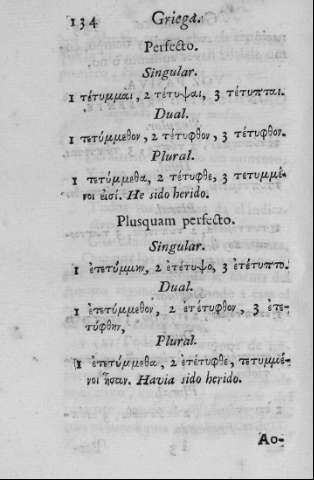 134 Griega.
Perfecto.
Singular.
1 τέτυμμαι, 2 τέτυψαι, 3 τέτυπται.
Dual.
1 τετύμμεθον, 2 τέτυφθον, 3 τέτυφθον.
Plural.
1 τετύμμεθα, 2 τέτυφθε, 3 τετυμμέ-
νοι εἰσί. He sido herido.
Plusquam perfecto.
Singular.
1 ἐτετύμμην, 2 ἐτέτυψο, 3 ἐτέτυπτο.
Dual.
1 ἐτετύμμεθον, 2 ἐτέτυφθον, 3 ἐτε-
τύφθην,
Plural.
1 ἐτετύμμεθα, 2 ἐτέτυφθε, τετυμμέ-
νοι ἦσαν. Havia sido herido.
Ao-